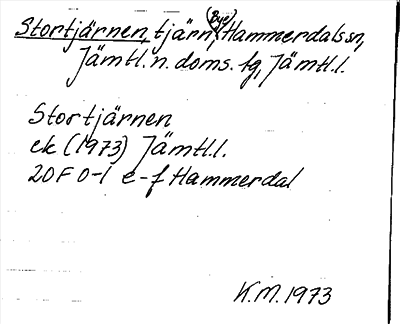 Stortjärnen, tjärn, (Bye) Hammerdals sn,
Jämtl. n. doms. fg, Jämtl.l.
Stortjärnen
ek (1973) Jämtl.l.
20F 0-1 e-f Hammerdal
K.M. 1973